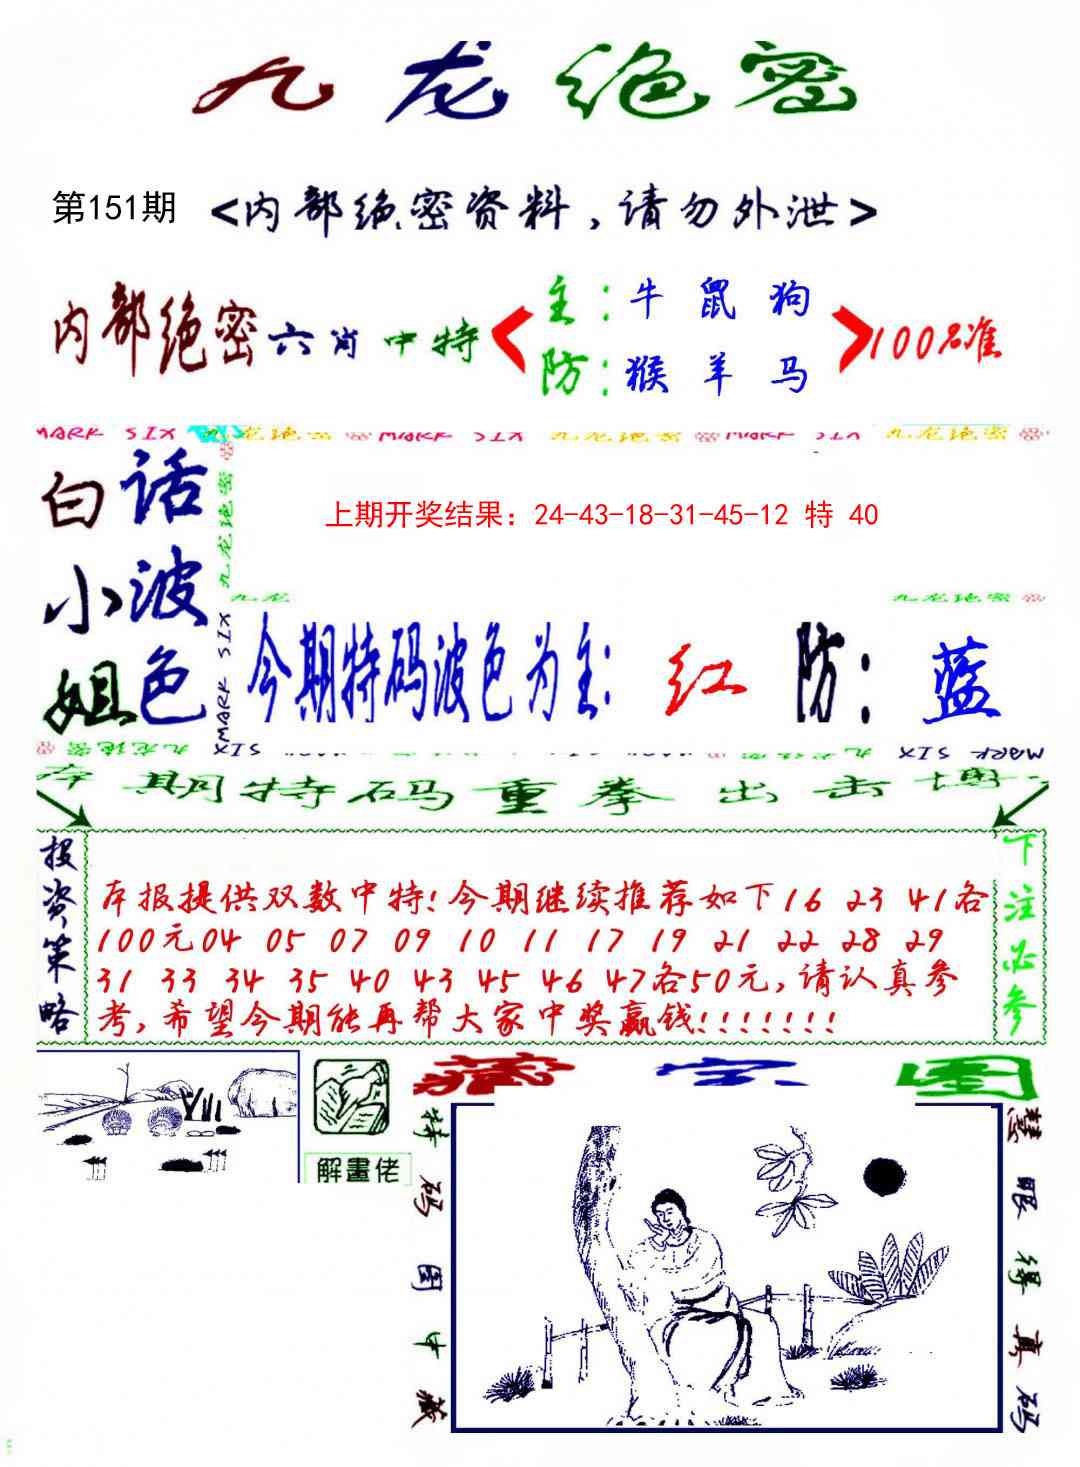 九龙绝密
第151期 <内部绝密资料,请勿外泄>
内部绝密六肖中特 < 主:牛 鼠 狗 > 100%准
防:猴 羊 马
MARK SIX 九龙绝密 MARK SIX 九龙绝密 MARK SIX 九龙绝密
白话
小波
姐色
九龙绝密
MARK SIX
上期开奖结果：24-43-18-31-45-12 特 40
九龙
九龙绝密
今期特码波色为主: 红 防: 蓝
九龙绝密 MARK SIX
九龙绝密 MARK SIX
本期特码重拳出击博
投资策略
本报提供双数中特!今期继续推荐如下16 23 41各
100元04 05 07 09 10 11 17 19 21 22 28 29
31 33 34 35 40 43 45 46 47各50元,请认真参
考,希望今期能再帮大家中奖赢钱!!!!!!!
下注必参
解畫佬
藏宝图
特码图中藏
慧眼得真码